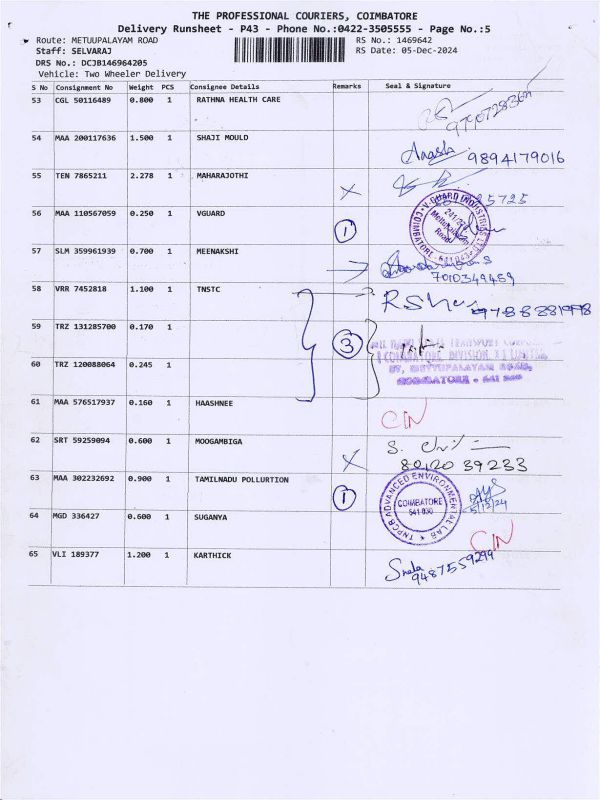 THE PROFESSIONAL COURIERS, COIMBATORE
Delivery Runsheet - P43 - Phone No.:0422-3505555 - Page No.:5
Route: METUUPALAYAM ROAD RS No.: 1469642
Staff: SELVARAJ RS Date: 05-Dec-2024
DRS No.: DCJB146964205
Vehicle: Two Wheeler Delivery
S No Consignment No Weight PCS Consignee Details Remarks Seal & Signature
53 CGL 50116489 0.800 1 RATHNA HEALTH CARE
54 MAA 200117636 1.500 1 SHAJI MOULD
9894179016
55 TEN 7865211 2.278 1 MAHARAJOTHI X
56 MAA 110567059 0.250 1 VGUARD 1
V-GUARD INDUSTRIES LTD
Mettupalayam
Road
COIMBATORE - 641 043
57 SLM 359961939 0.700 1 MEENAKSHI
7010349469
58 VRR 7452818 1.100 1 TNSTC
59 TRZ 131285700 0.170 1 3
60 TRZ 120088064 0.245 1
(COIMBATORE DIVISION
61 MAA 576517937 0.160 1 HAASHNEE CIN
62 SRT 59259094 0.600 1 MOOGAMBIGA X
80120 39233
63 MAA 302232692 0.900 1 TAMILNADU POLLURTION 1
TNPCB ADVANCED ENVIRONMENTAL LAB
COIMBATORE
5/12/24
64 MGD 336427 0.600 1 SUGANYA CIN
65 VLI 189377 1.200 1 KARTHICK
9487559299